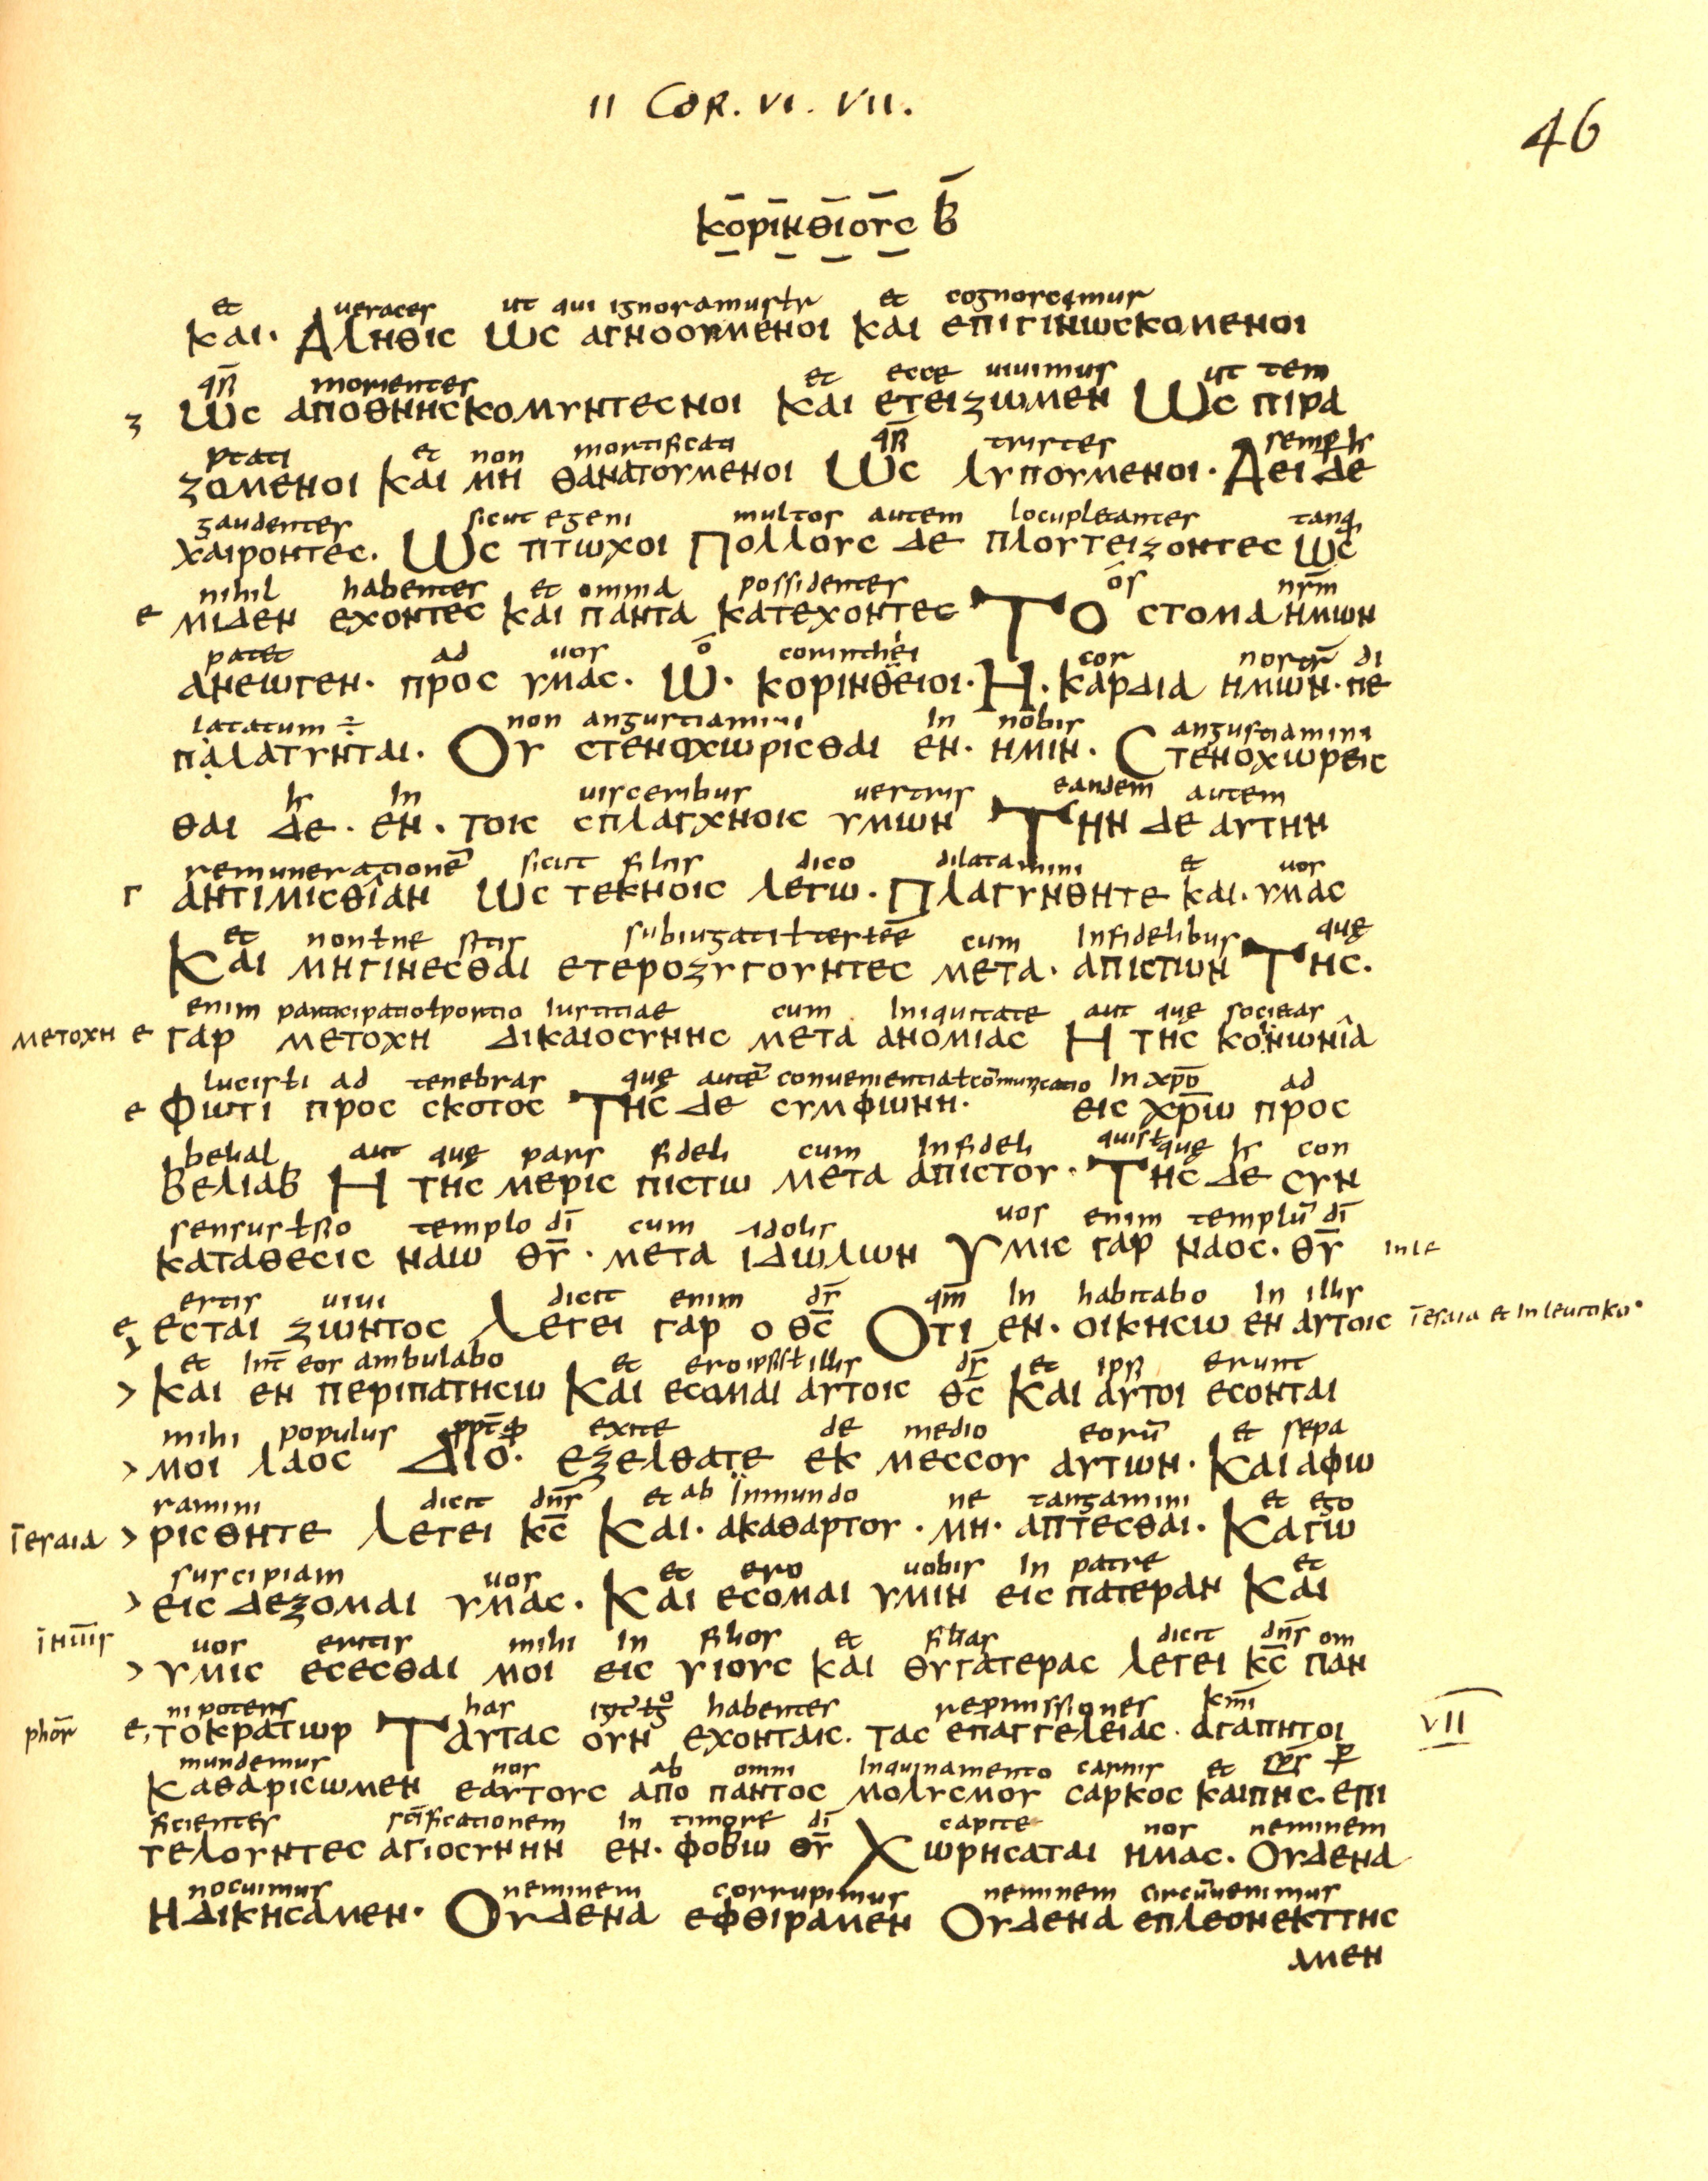 II COR. VI. VII.
46
κορινθιους β
et ueraces ut qui ignoramus et cognoscimur
και· Αληθις Ως αγνοουμενοι και επιγινωσκομενοι
morientes et ecce uiuimus ut tem
Ως αποθνησκομυντεσνοι Και ετειζωμεν Ως πιρα
ptati et non mortificati tristes semp
ζομενοι και μη θανατουμενοι Ως λυπουμενοι· Αει δε
gaudentes sicut egeni multos autem locupletantes tanq
χαιροντες. Ως πτωχοι Πολλους δε πλουτειζοντες ως
nihil habentes et omnia possidentes os nrm
ε μιδεν εχοντες και παντα κατεχοντες Το στομα ημων
patet ad uos o corinthii cor nostr di
ανεωγεν· προς υμας. Ω· κορινθειοι· Η· καρδια ημων· πε
latatum ÷ non angustiamini in nobis angustiamini
παλατυνται. Ου στενοχωρισθαι εν· ημιν. Στενοχωρεις
in uisceribus uestris eandem autem
θαι δε· εν· τοις σπλαγχνοις υμων Την δε αυτην
remuneratione sicut filiis dico dilatamini et uos
Γ αντιμισθιαν Ως τεκνοις λεγω. Πλαγυνθητε και· υμας
et cum infidelibus que
Και μηγινεσθαι ετεροζυγουντες μετα· απιστων Της.
enim participatio ł portio iustitiae cum iniquitate aut que societas
μετοχη ε γαρ μετοχη δικαιοσυνης μετα ανομιας Η της κοινωνια
ad tenebras que aute in xpo ad
ε Φωτι προς σκοτος Της δε συμφωνη. εις χρω προς
belial aut que pars fideli cum infideli con
βελιαβ Η της μερις πιστω μετα απιστου· Της δε συν
templo di cum idolis uos enim templu di
καταθεσις ναω θυ· μετα ιδωλων Υμις γαρ ναος· θυ
estis uiui dicit enim ds qm in habitabo in illis
εσται ζωντος Λεγει γαρ ο θς Οτι εν· οικησω εν αυτοις
et int eos ambulabo et ds et ipsi erunt
> και εν περιπατησω Και εσομαι αυτοις θς Και αυτοι εσονται
mihi populus exite de medio eoru et sepa
> μοι λαος Διο· εξελθατε εκ μεσσου αυτων. Και αφω
ramini dicit dns et ab inmundo ne tangamini et ego
Iesaia > ρισθητε Λεγει κς Και· ακαθαρτου· μη· απτεσθαι. Καγω
suscipiam uos et ero uobis in patre et
> εις δεζομαι υμας. Και εσομαι υμιν εις πατεραν Και
uos eritis mihi in filios et filias dicit dns om
> υμις εσεσθαι μοι εις υιους και θυγατερας λεγει κς παν
nipotens has habentes repmissiones kmi
ε, τοκρατωρ Ταυτας ουν εχονταις. τας επαγγελειας· αγαπητοι
VII
mundemus nos ab omni inquinamento carnis et sps p
Καθαρισωμεν εαυτους απο παντος μολυσμου σαρκος καιπνς· επι
ficientes scificationem in timore di capite nos neminem
τελουντες αγιοσυνην εν· φοβω θυ Χωρησαται ημας. Ουδενα
nocuimus neminem corrupimus neminem circuuenimus
Ηδικησαμεν· Ουδενα εφθιραμεν Ουδενα επλεονεκττης
αμεν